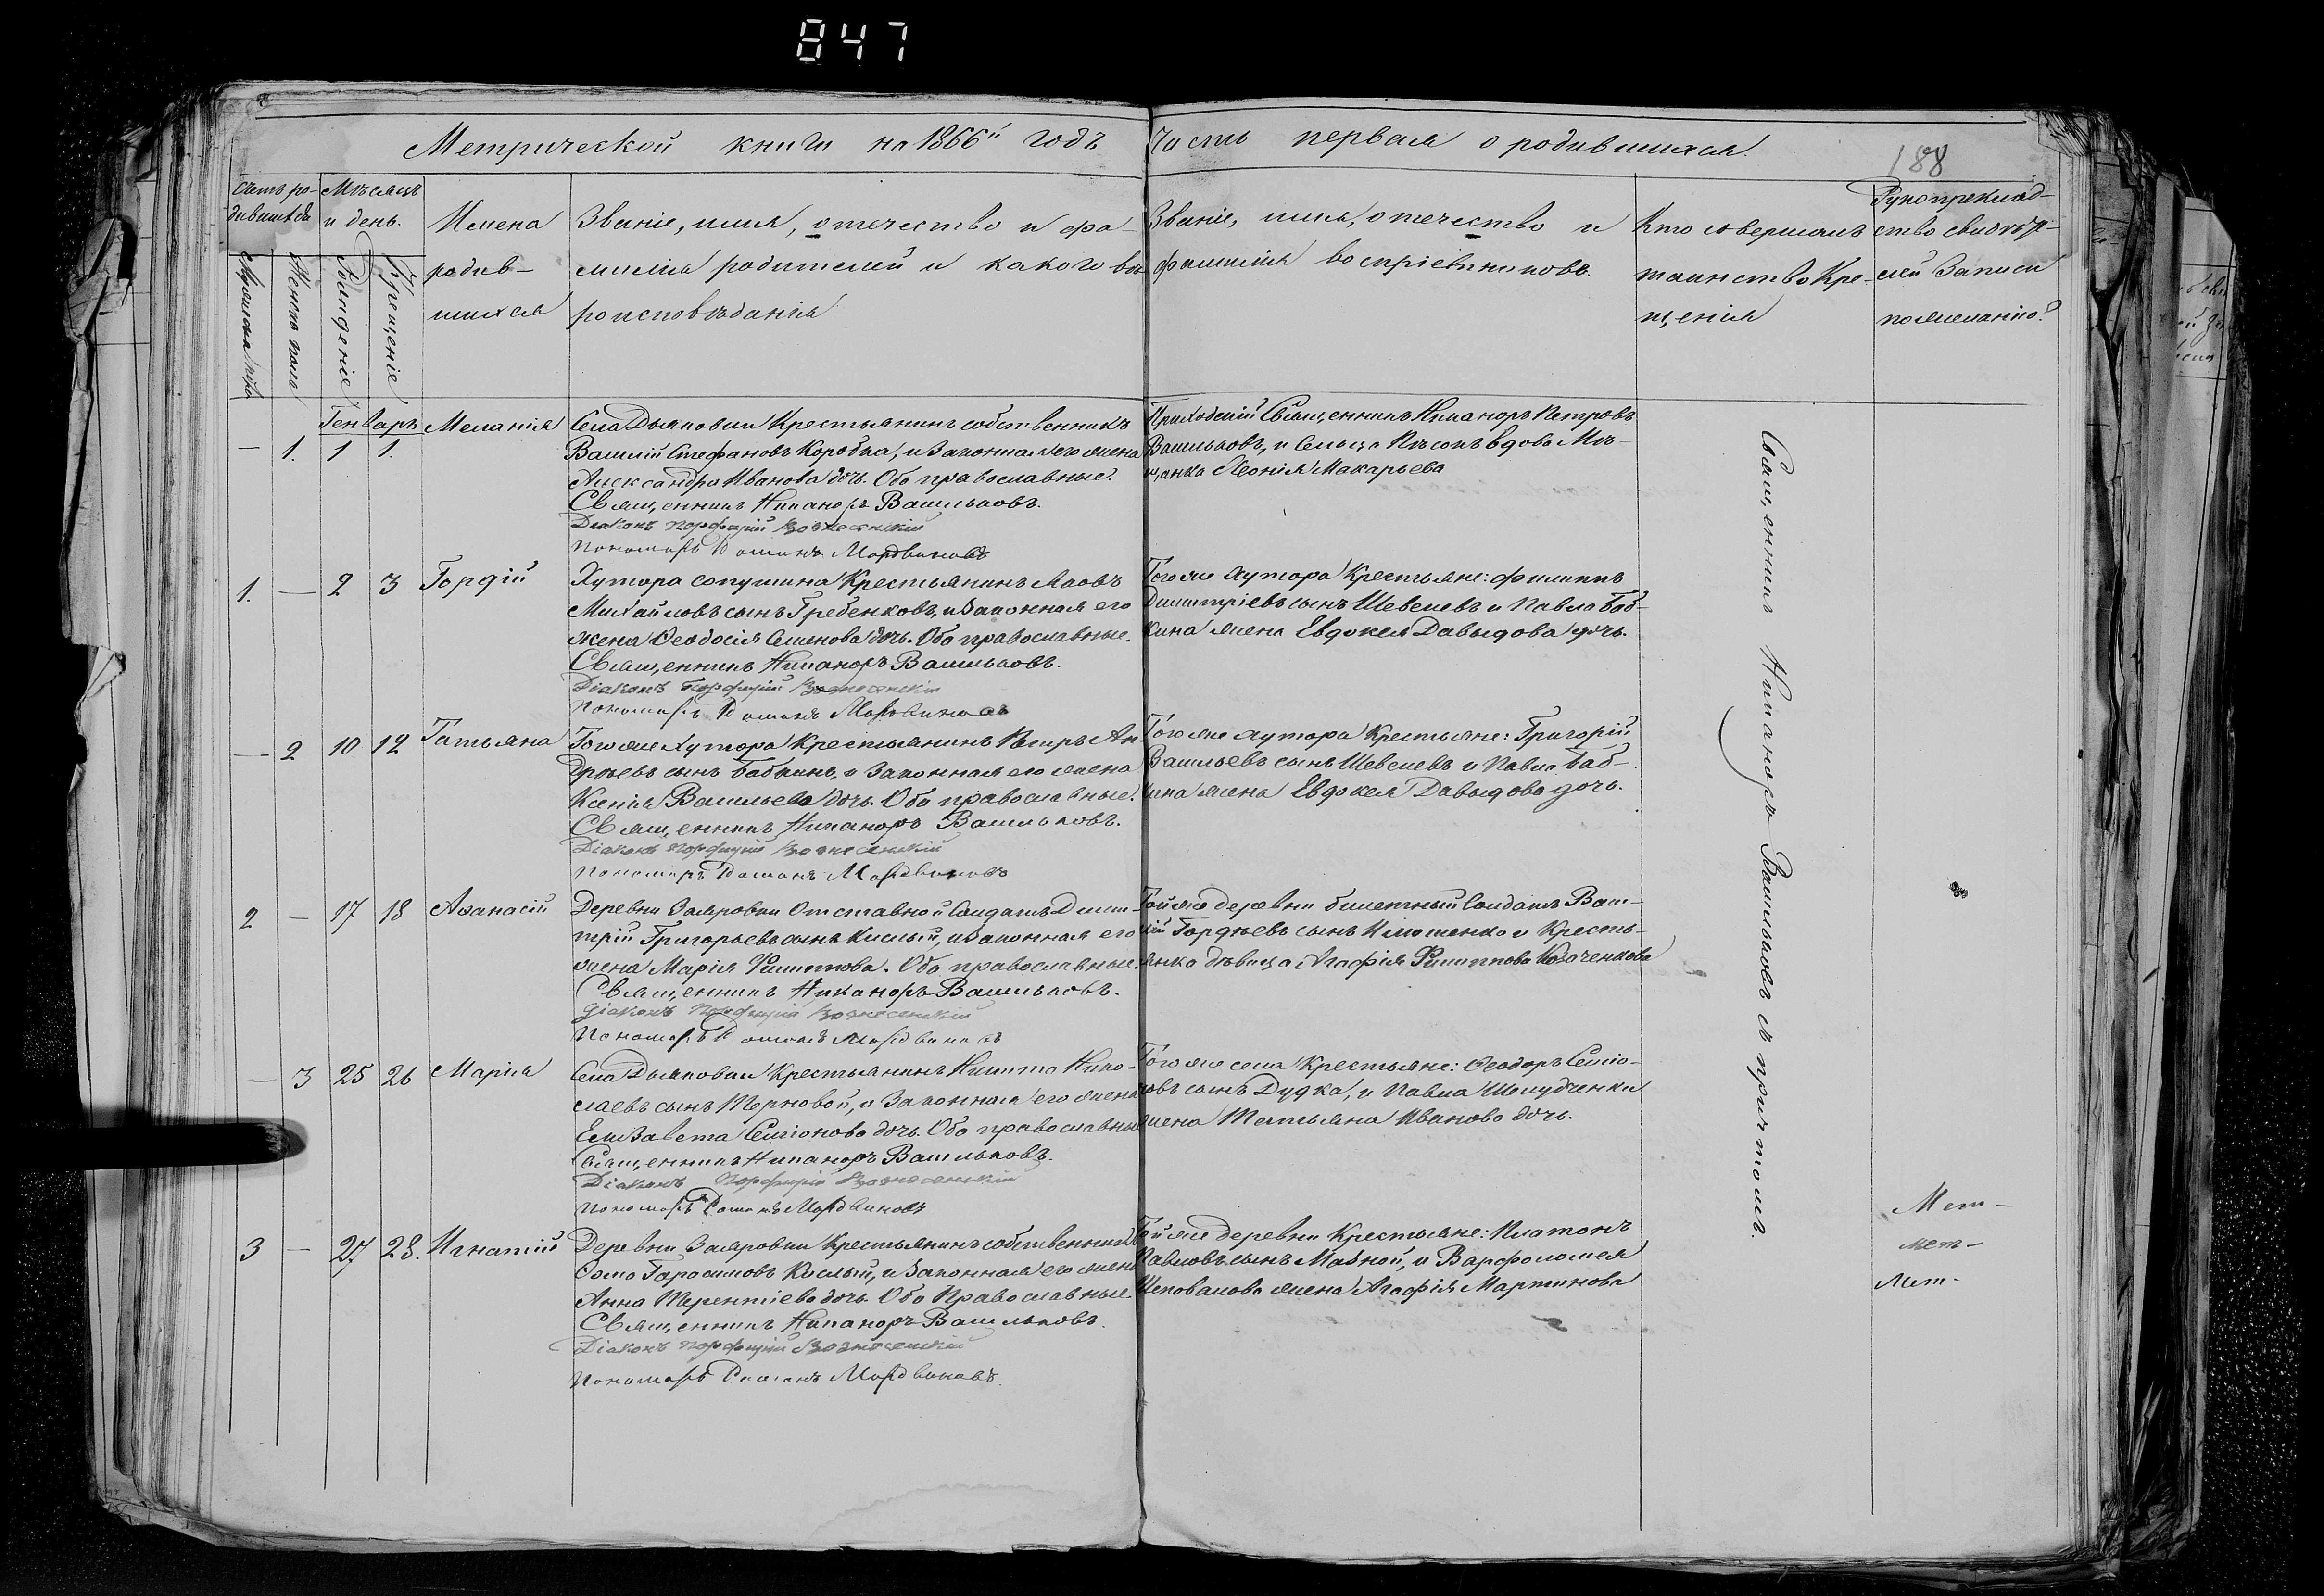 847
Метрической книги на 1866й годъ
Часть первая о родившихся.
188
Счетъ ро-
дившихся
Мужеска полъ
Женска полъ
Мѣсяцъ
и день.
Рожденіе
Крещеніе
Имена
родив-
шихся
Званіе, имя, отечество и фа-
милія родителей и какого вѣ-
роисповѣданія
Званіе, имя, отечество и
фамилія воспріемниковъ.
Кто совершалъ
таинство Кре-
щенія
Рукоприклад-
ство свидѣте-
лей Записи
по желанію.
Генварь
— 1. 1 1.
Меланія
Села Дьяковки Крестьянинъ собственникъ
Василій Стефановъ Коробка, и Законная его жена
Александра Иванова дочь. Оба православные.
Священникъ Никаноръ Васильковъ.
Діаконъ Порфирій Вознесенскій
Пономарь Романъ Мордвиновъ
Приходскій Священникъ Никаноръ Петровъ
Васильковъ, и Сельца вдова Мѣ-
щанка Леонія Макарьева
1. — 2 3
Гордій
Хутора Крестьянинъ
Михайловъ сынъ Гребенковъ, и Законная его
жена Ѳеодосія Семенова дочь. Оба православные.
Священникъ Никаноръ Васильковъ.
Діаконъ Порфирій Вознесенскій
Пономарь Романъ Мордвиновъ
Того же хутора Крестьяне: Филиппъ
Димитріевъ сынъ Шевелевъ и Павла Баб-
кина жена Евдокея Давыдова дочь.
— 2 10 12
Татьяна
Того же Хутора Крестьянинъ Петръ Ан-
дреевъ сынъ Бабкинъ, и Законная его жена
Ксенія Васильева дочь. Оба православные.
Священникъ Никаноръ Васильковъ.
Діаконъ Порфирій Вознесенскій
Пономарь Романъ Мордвиновъ
Того же хутора Крестьяне: Григорій
Васильевъ сынъ Шевелевъ и Павла Баб-
кина жена Евдокея Давыдова дочь.
2 — 17 18
Аѳанасій
Деревни Отставной Солдатъ Дими-
трій Григорьевъ сынъ Кислый, и Законная его
жена Марія Филиппова. Оба православные.
Священникъ Никаноръ Васильковъ.
Діаконъ Порфирій Вознесенскій
Пономарь Романъ Мордвиновъ
Той же деревни билетный Солдатъ Васи-
лій Гордѣевъ сынъ и Кресть-
янка дѣвица Агафія Филиппова Козаченкова
— 3 25 26
Марія
Села Дьяковки Крестьянинъ Никита Нико-
лаевъ сынъ Терновой, и Законная его жена
Елизавета Семіонова дочь. Оба православные
Священникъ Никаноръ Васильковъ.
Діаконъ Порфирій Вознесенскій
Пономарь Романъ Мордвиновъ
Того же села Крестьяне: Ѳеодоръ Семіо-
новъ сынъ Дудка, и Павла Шелудченки
жена Татьяна Иванова дочь.
3 — 27 28.
Игнатій
Деревни Крестьянинъ собственникъ
Ѳома Гарасимовъ Кислый, и Законная его жена
Анна Терентіева дочь. Оба Православные.
Священникъ Никаноръ Васильковъ.
Діаконъ Порфирій Вознесенскій
Пономарь Романъ Мордвиновъ.
Той же деревни Крестьяне: Платонъ
Павловъ сынъ Мазной, и Варфоломея
Шаповалова жена Агафія Мартинова
Священникъ Никаноръ Васильковъ съ причтомъ.
Мет-
мет-
Мет-